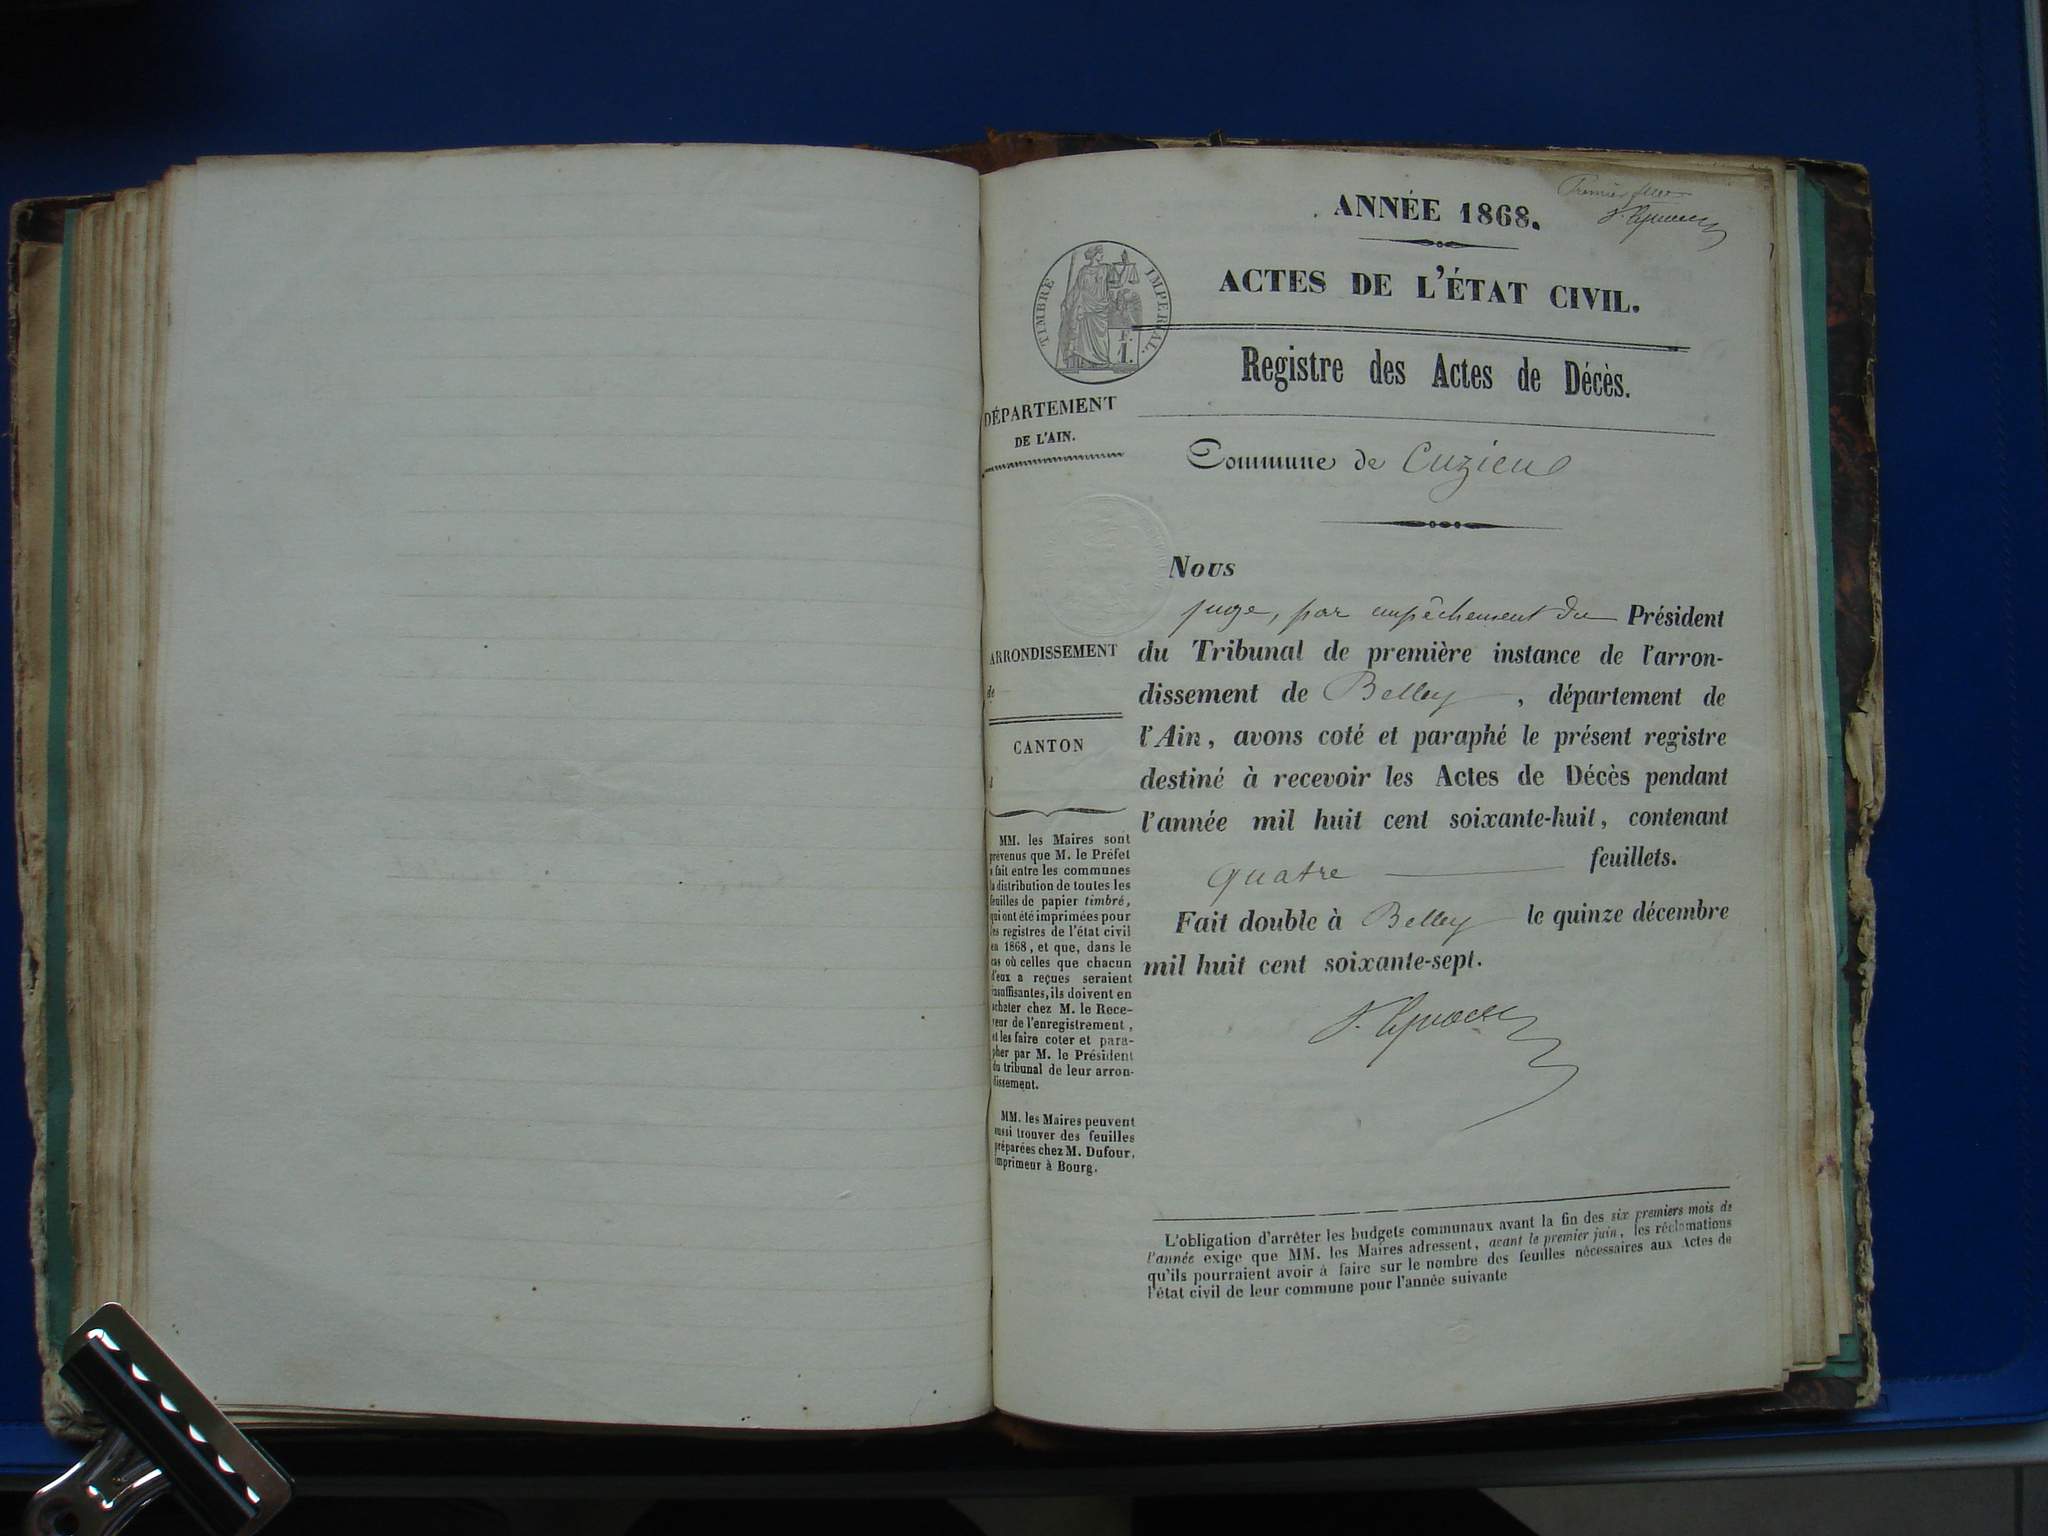 Premier
ANNÉE 1868.
ACTES DE L'ÉTAT CIVIL.
TIMBRE IMPERIAL.
F.
1.
Registre des Actes de Décès.
DÉPARTEMENT
DE L'AIN.
Commune de Cuzieu
ARRONDISSEMENT
de
CANTON
d
MM. les Maires sont
prévenus que M. le Préfet
a fait entre les communes
la distribution de toutes les
feuilles de papier timbré,
qui ont été imprimées pour
les registres de l'état civil
en 1868, et que, dans le
cas où celles que chacun
d'eux a reçues seraient
insuffisantes, ils doivent en
acheter chez M. le Rece-
veur de l'enregistrement,
et les faire coter et para-
pher par M. le Président
du tribunal de leur arron-
dissement.
MM. les Maires peuvent
aussi trouver des feuilles
préparées chez M. Dufour,
imprimeur à Bourg.
Nous
juge, par empêchement du Président
du Tribunal de première instance de l'arron-
dissement de Belley, département de
l'Ain, avons coté et paraphé le présent registre
destiné à recevoir les Actes de Décès pendant
l'année mil huit cent soixante-huit, contenant
quatre feuillets.
Fait double à Belley le quinze décembre
mil huit cent soixante-sept.
L'obligation d'arrêter les budgets communaux avant la fin des six premiers mois de
l'année exige que MM. les Maires adressent, avant le premier juin, les réclamations
qu'ils pourraient avoir à faire sur le nombre des feuilles nécessaires aux Actes de
l'état civil de leur commune pour l'année suivante